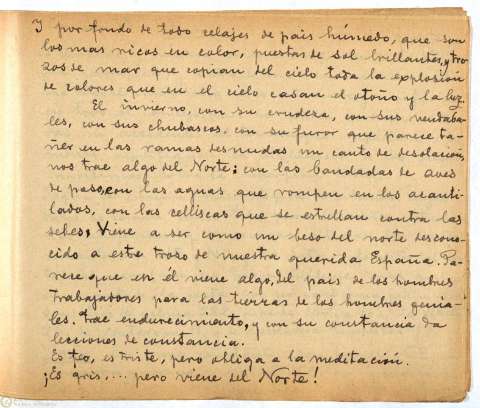 Y por fondo de todo celajes de país húmedo, que son
los mas ricos en color, puestas de sol brillantes, y tro-
zos de mar que copian del cielo toda la explosión
de colores que en el cielo casan el otoño y la luz.
El invierno, con su crudeza, con sus vendaba-
les, con sus chubascos, con su furor que parece ta-
ñer en las ramas desnudas un canto de desolación,
nos trae algo del Norte; con las bandadas de aves
de paso, con las aguas que rompen en los acanti-
lados, con las celliscas que se estrellan contra las
sebes, Viene a ser como un beso del norte descono-
cido a este trozo de nuestra querida España. Pa-
rese que en él viene algo, del país de los hombres
trabajadores para las tierras de los hombres genia-
les. Trae endurecimiento, y con su constancia da
lecciones de constancia.
Es feo, es triste, pero obliga a la meditación.
¡Es gris,... pero viene del Norte!